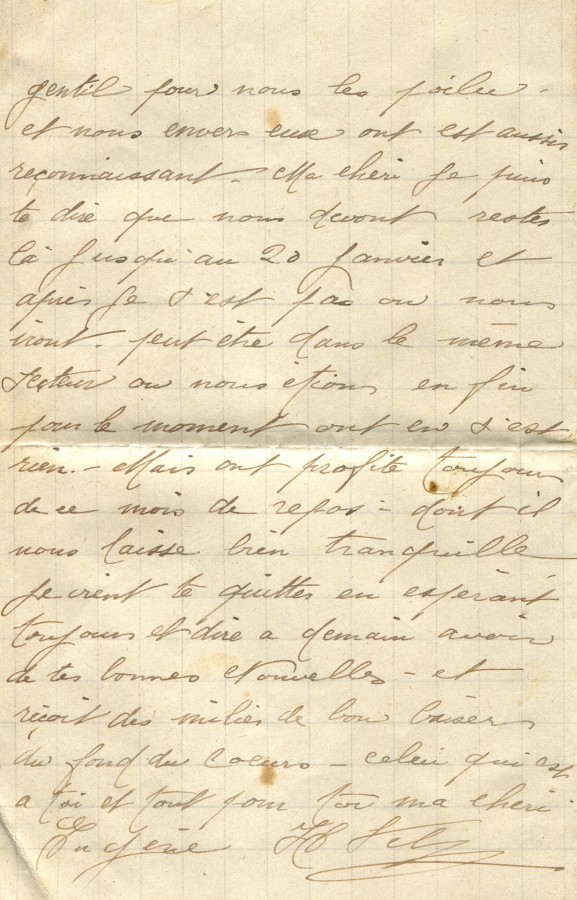 gentil pour nous les poilu -
et nous envers eux ont est aussis
reconnaissant. Ma cheri Je puis
te dire que nous devont restes
là Jusqu'au 20 Janvier et
après Je s'est pas ou nous
iront. peut être dans le même
secteur ou nous étions en fin
pour le moment ont en s'est
rien. - Mais ont profite toujours
de ce mois de repos - dont il
nous laisse bien tranquille
Je vient te quittes en espérant
toujours et dire a demain avoir
de tes bonnes Nouvelles - et
reçoit des miliers de bon baisers
du fond du Coeurs - celui qui est
a toi et tout pour toi ma cheri
Eugénie H